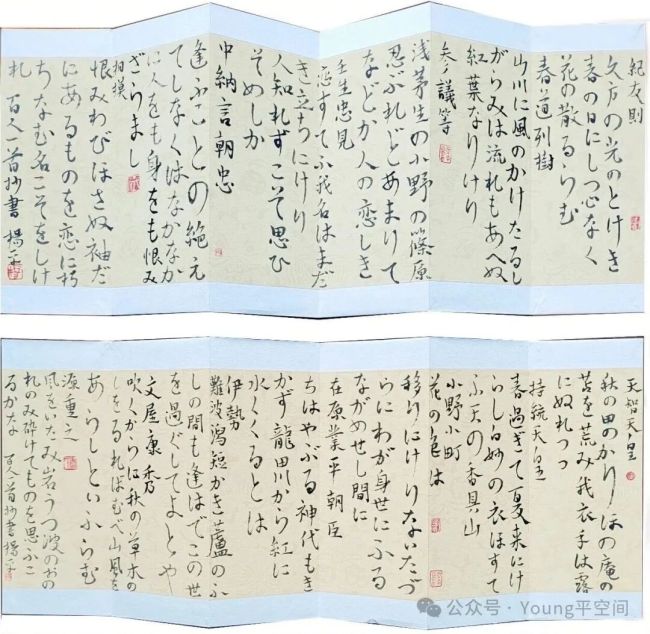 紀友則
久方の光のとけき
春の日にしつ心なく
花の散るらむ
春道列樹
山川に風のかけたるし
がらみは流れもあへぬ
紅葉なりけり
参議等
浅茅生の小野の篠原
忍ぶれどあまりて
などか人の恋しき
壬生忠見
恋すてふ我名はまだ
き立ちにけり
人知れずこそ思ひ
そめしか
中納言朝忠
逢ふことの絶え
てしなくはなかなか
に人をも身をも恨み
ざらまし
相模
恨みわびほさぬ袖だ
にあるものを恋に朽
ちなむ名こそをしけ
れ 百人一首抄書 楊平
天智天皇
秋の田のかりほの庵の
苫を荒み我衣手は露
にぬれつつ
持統天皇
春過ぎて夏来にけ
らし白妙の衣ほすて
ふ天の香具山
小野小町
花の色は
移りにけりないたづ
らにわが身世にふる
ながめせし間に
在原業平朝臣
ちはやぶる神代もき
かず龍田川から紅に
水くくるとは
伊勢
難波潟短かき蘆のふ
しの間も逢はでこの世
を過ぐしてよとや
文屋康秀
吹くからに秋の草木の
しをるればむべ山風を
あらしといふらむ
源重之
風をいたみ岩うつ波のおの
れのみ砕けてものを思ふこ
ろかな 百人一首抄書 楊平
公众号 · Young平空间